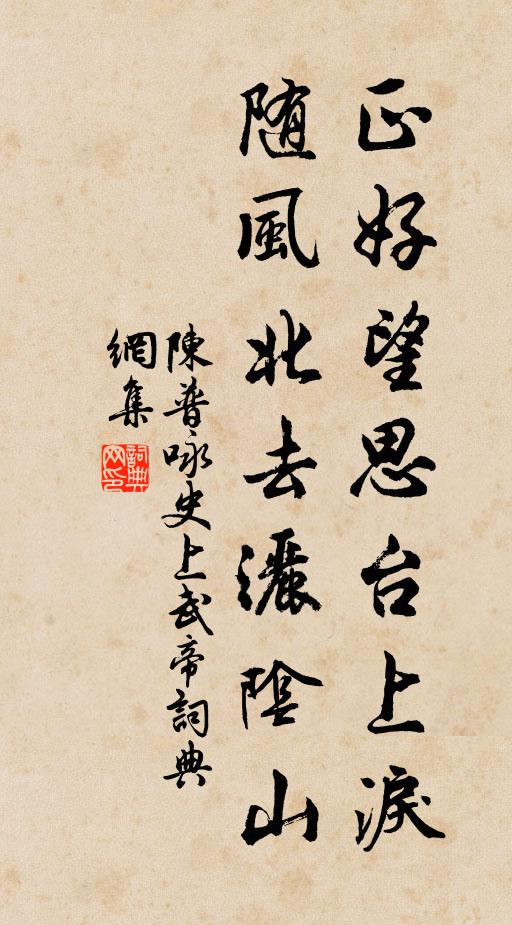 正好望思台上淚
随風北去灑陰山
陳普咏史上武帝詞典
網集
詞典
网印